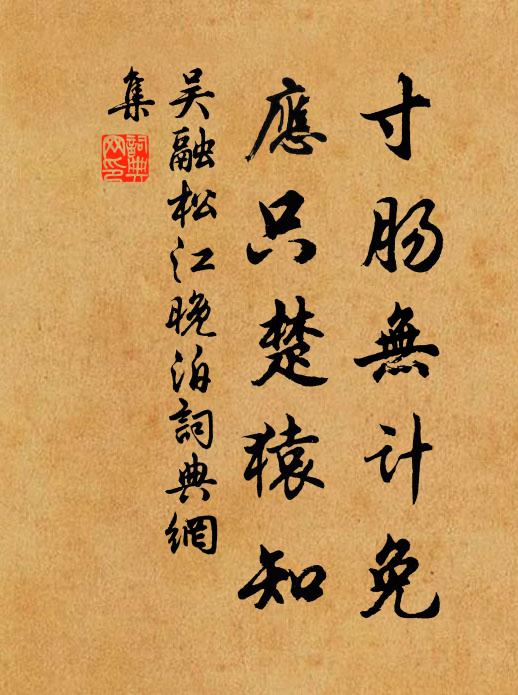 寸肠無计免
應只楚猿知
吴融松江晚泊詞典網
集
詞典
网印